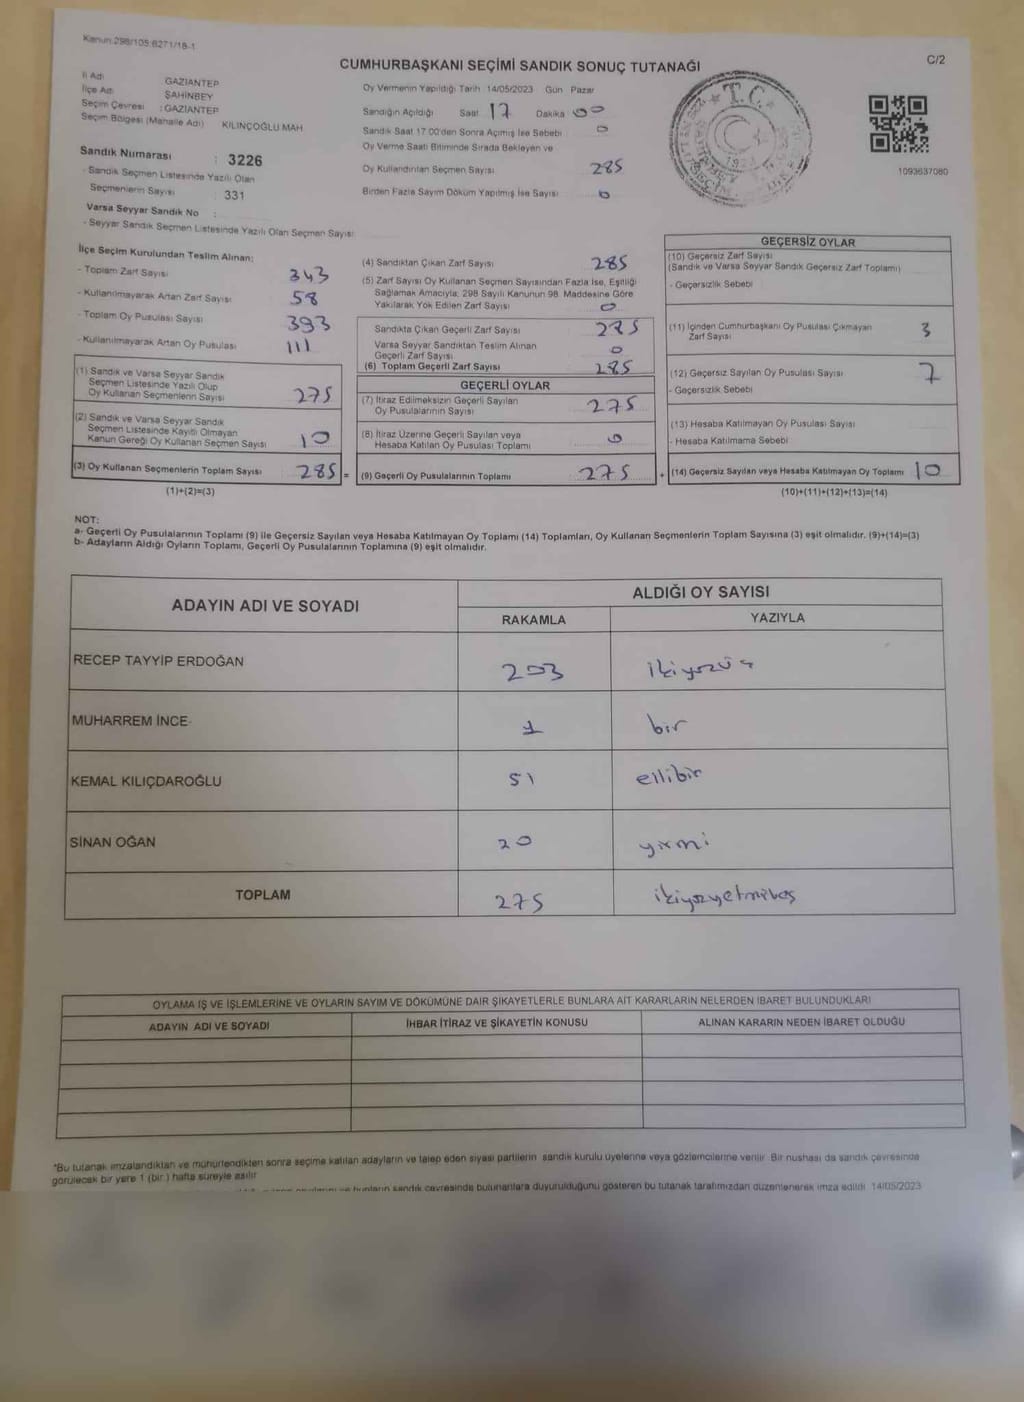 Kanun:298/105,6271/18-1
C/2
CUMHURBAŞKANI SEÇİMİ SANDIK SONUÇ TUTANAĞI
İl Adı GAZİANTEP
İlçe Adı ŞAHİNBEY
Seçim Çevresi : GAZİANTEP
Seçim Bölgesi (Mahalle Adı) KILINÇOĞLU MAH.
Sandık Numarası : 3226
- Sandık Seçmen Listesinde Yazılı Olan
Seçmenlerin Sayısı : 331
Varsa Seyyar Sandık No :
- Seyyar Sandık Seçmen Listesinde Yazılı Olan Seçmen Sayısı
Oy Vermenin Yapıldığı Tarih 14/05/2023 Gün Pazar
Sandığın Açıldığı Saat 17 Dakika 00
Sandık Saat 17:00'den Sonra Açılmış İse Sebebi 0
Oy Verme Saati Bitiminde Sırada Bekleyen ve
Oy Kullandırılan Seçmen Sayısı 285
Birden Fazla Sayım Döküm Yapılmış İse Sayısı 0
T.C.
1093637080
İlçe Seçim Kurulundan Teslim Alınan:
- Toplam Zarf Sayısı 343
- Kullanılmayarak Artan Zarf Sayısı 58
- Toplam Oy Pusulası Sayısı 393
- Kullanılmayarak Artan Oy Pusulası 111
(1) Sandık ve Varsa Seyyar Sandık
Seçmen Listesinde Yazılı Olup
Oy Kullanan Seçmenlerin Sayısı 275
(2) Sandık ve Varsa Seyyar Sandık
Seçmen Listesinde Kayıtlı Olmayan
Kanun Gereği Oy Kullanan Seçmen Sayısı 10
(3) Oy Kullanan Seçmenlerin Toplam Sayısı 285 =
(1)+(2)=(3)
(4) Sandıktan Çıkan Zarf Sayısı 285
(5) Zarf Sayısı Oy Kullanan Seçmen Sayısından Fazla İse, Eşitliği
Sağlamak Amacıyla; 298 Sayılı Kanunun 98. Maddesine Göre
Yakılarak Yok Edilen Zarf Sayısı 0
Sandıkta Çıkan Geçerli Zarf Sayısı 275
Varsa Seyyar Sandıktan Teslim Alınan
Geçerli Zarf Sayısı 0
(6) Toplam Geçerli Zarf Sayısı 285
GEÇERLİ OYLAR
(7) İtiraz Edilmeksizin Geçerli Sayılan
Oy Pusulalarının Sayısı 275
(8) İtiraz Üzerine Geçerli Sayılan veya
Hesaba Katılan Oy Pusulası Toplamı 0
(9) Geçerli Oy Pusulalarının Toplamı 275 +
GEÇERSİZ OYLAR
(10) Geçersiz Zarf Sayısı
(Sandık ve Varsa Seyyar Sandık Geçersiz Zarf Toplamı)
- Geçersizlik Sebebi
(11) İçinden Cumhurbaşkanı Oy Pusulası Çıkmayan
Zarf Sayısı 3
(12) Geçersiz Sayılan Oy Pusulası Sayısı 7
- Geçersizlik Sebebi
(13) Hesaba Katılmayan Oy Pusulası Sayısı
- Hesaba Katılmama Sebebi
(14) Geçersiz Sayılan veya Hesaba Katılmayan Oy Toplamı 10
(10)+(11)+(12)+(13)=(14)
NOT:
a- Geçerli Oy Pusulalarının Toplamı (9) ile Geçersiz Sayılan veya Hesaba Katılmayan Oy Toplamı (14) Toplamları, Oy Kullanan Seçmenlerin Toplam Sayısına (3) eşit olmalıdır. (9)+(14)=(3)
b- Adayların Aldığı Oyların Toplamı, Geçerli Oy Pusulalarının Toplamına (9) eşit olmalıdır.
ADAYIN ADI VE SOYADI ALDIĞI OY SAYISI
RAKAMLA YAZIYLA
RECEP TAYYİP ERDOĞAN 203 ikiyüzüç
MUHARREM İNCE 1 bir
KEMAL KILIÇDAROĞLU 51 ellibir
SİNAN OĞAN 20 yirmi
TOPLAM 275 ikiyüzyetmibeş
OYLAMA İŞ VE İŞLEMLERİNE VE OYLARIN SAYIM VE DÖKÜMÜNE DAİR ŞİKAYETLERLE BUNLARA AİT KARARLARIN NELERDEN İBARET BULUNDUKLARI
ADAYIN ADI VE SOYADI İHBAR İTİRAZ VE ŞİKAYETİN KONUSU ALINAN KARARIN NEDEN İBARET OLDUĞU
*Bu tutanak imzalandıktan ve mühürlendikten sonra seçime katılan adayların ve talep eden siyasi partilerin sandık kurulu üyelerine veya gözlemcilerine verilir. Bir nüshası da sandık çevresinde
görülecek bir yere 1 (bir) hafta süreyle asılır.
bunların sandık çevresinde bulunanlara duyurulduğunu gösteren bu tutanak tarafımızdan düzenlenerek imza edildi. 14/05/2023